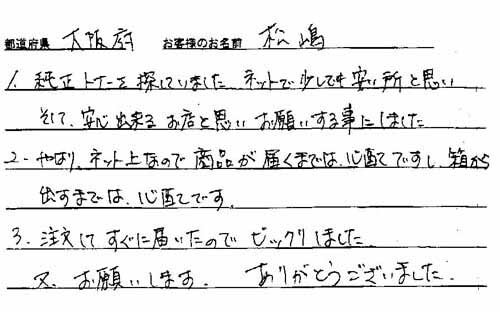 都道府県 大阪府 お客様のお名前 松嶋
1. 純正トナーを探していました ネットで少しでも安い所と思い
そして、安心出来るお店と思いお願いする事にしました
2- やはり、ネット上なので商品が届くまでは、心配ですし、箱から
出すまでは、心配です。
3. 注文してすぐに届いたのでビックリしました
又、お願いします。 ありがとうございました.